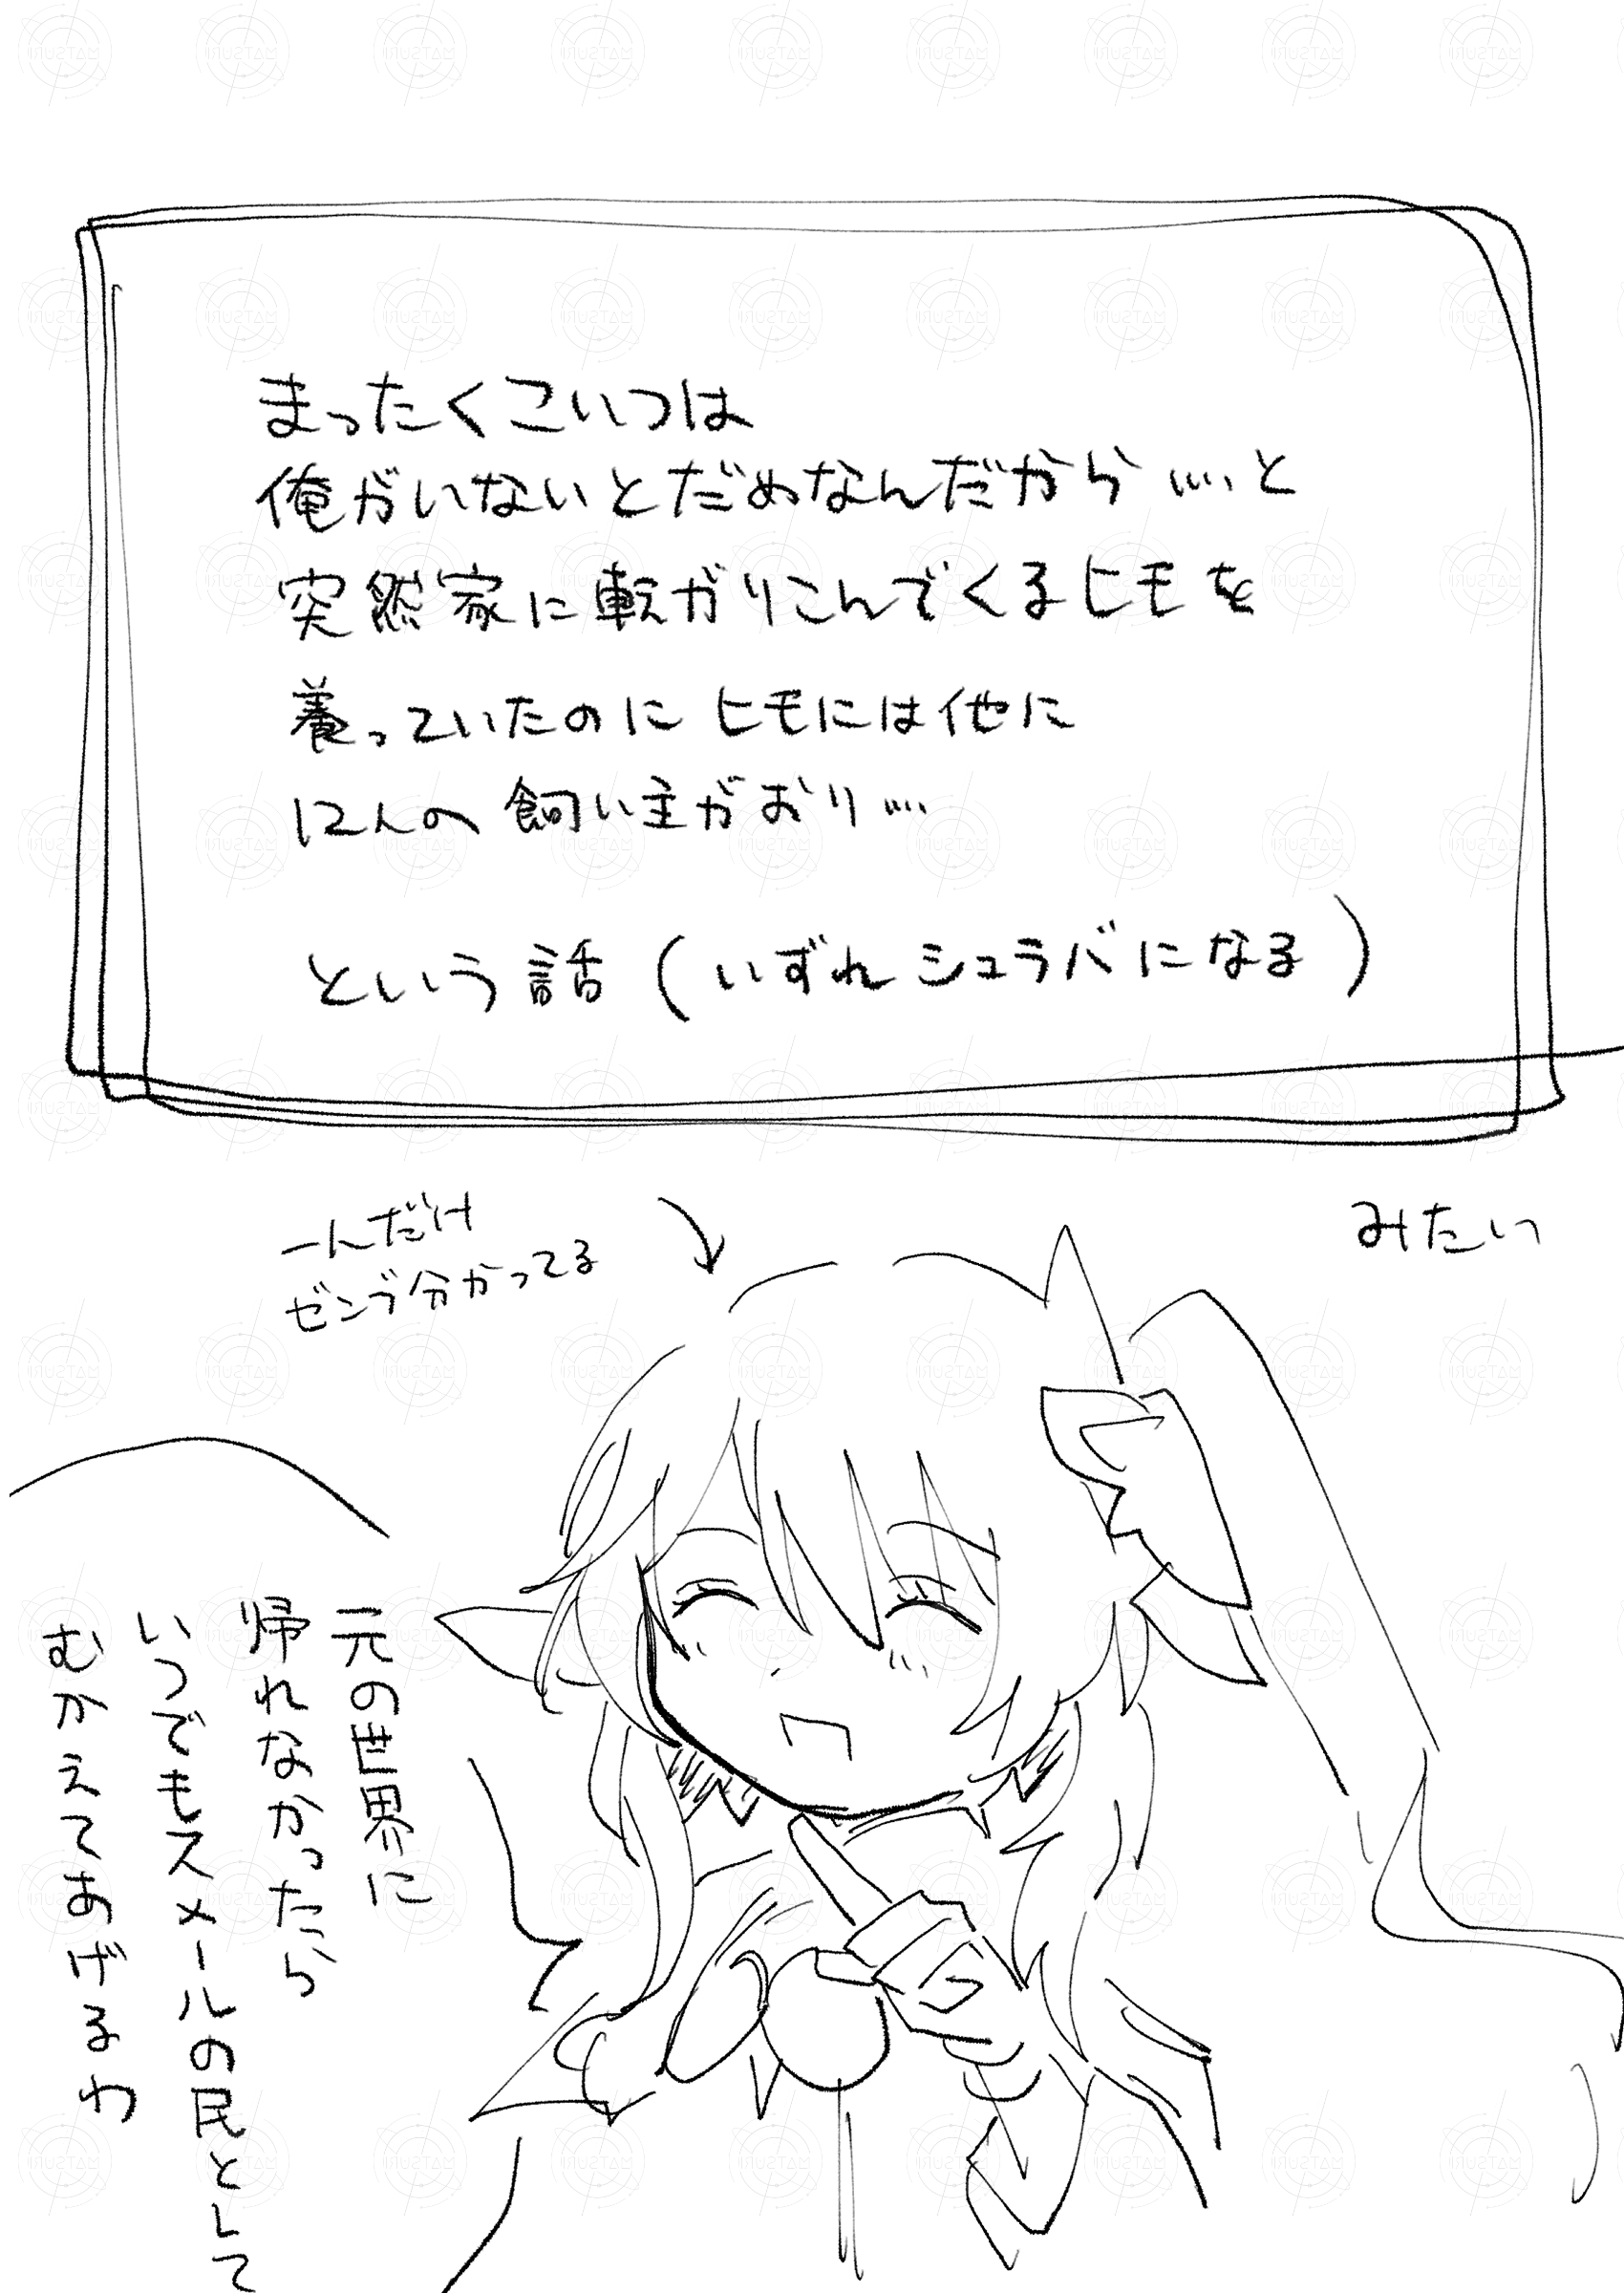 まったくこいつは
俺がいないとだめなんだから……と
突然家に転がりこんでくるヒモを
養っていたのに ヒモには他に
12人の飼い主がおり……
という話(いずれシュラバになる)
みたい
一人だけ
ゼンブ分かってる
元の世界に
帰れなかったら
いつでもスメールの民として
むかえてあげるわ